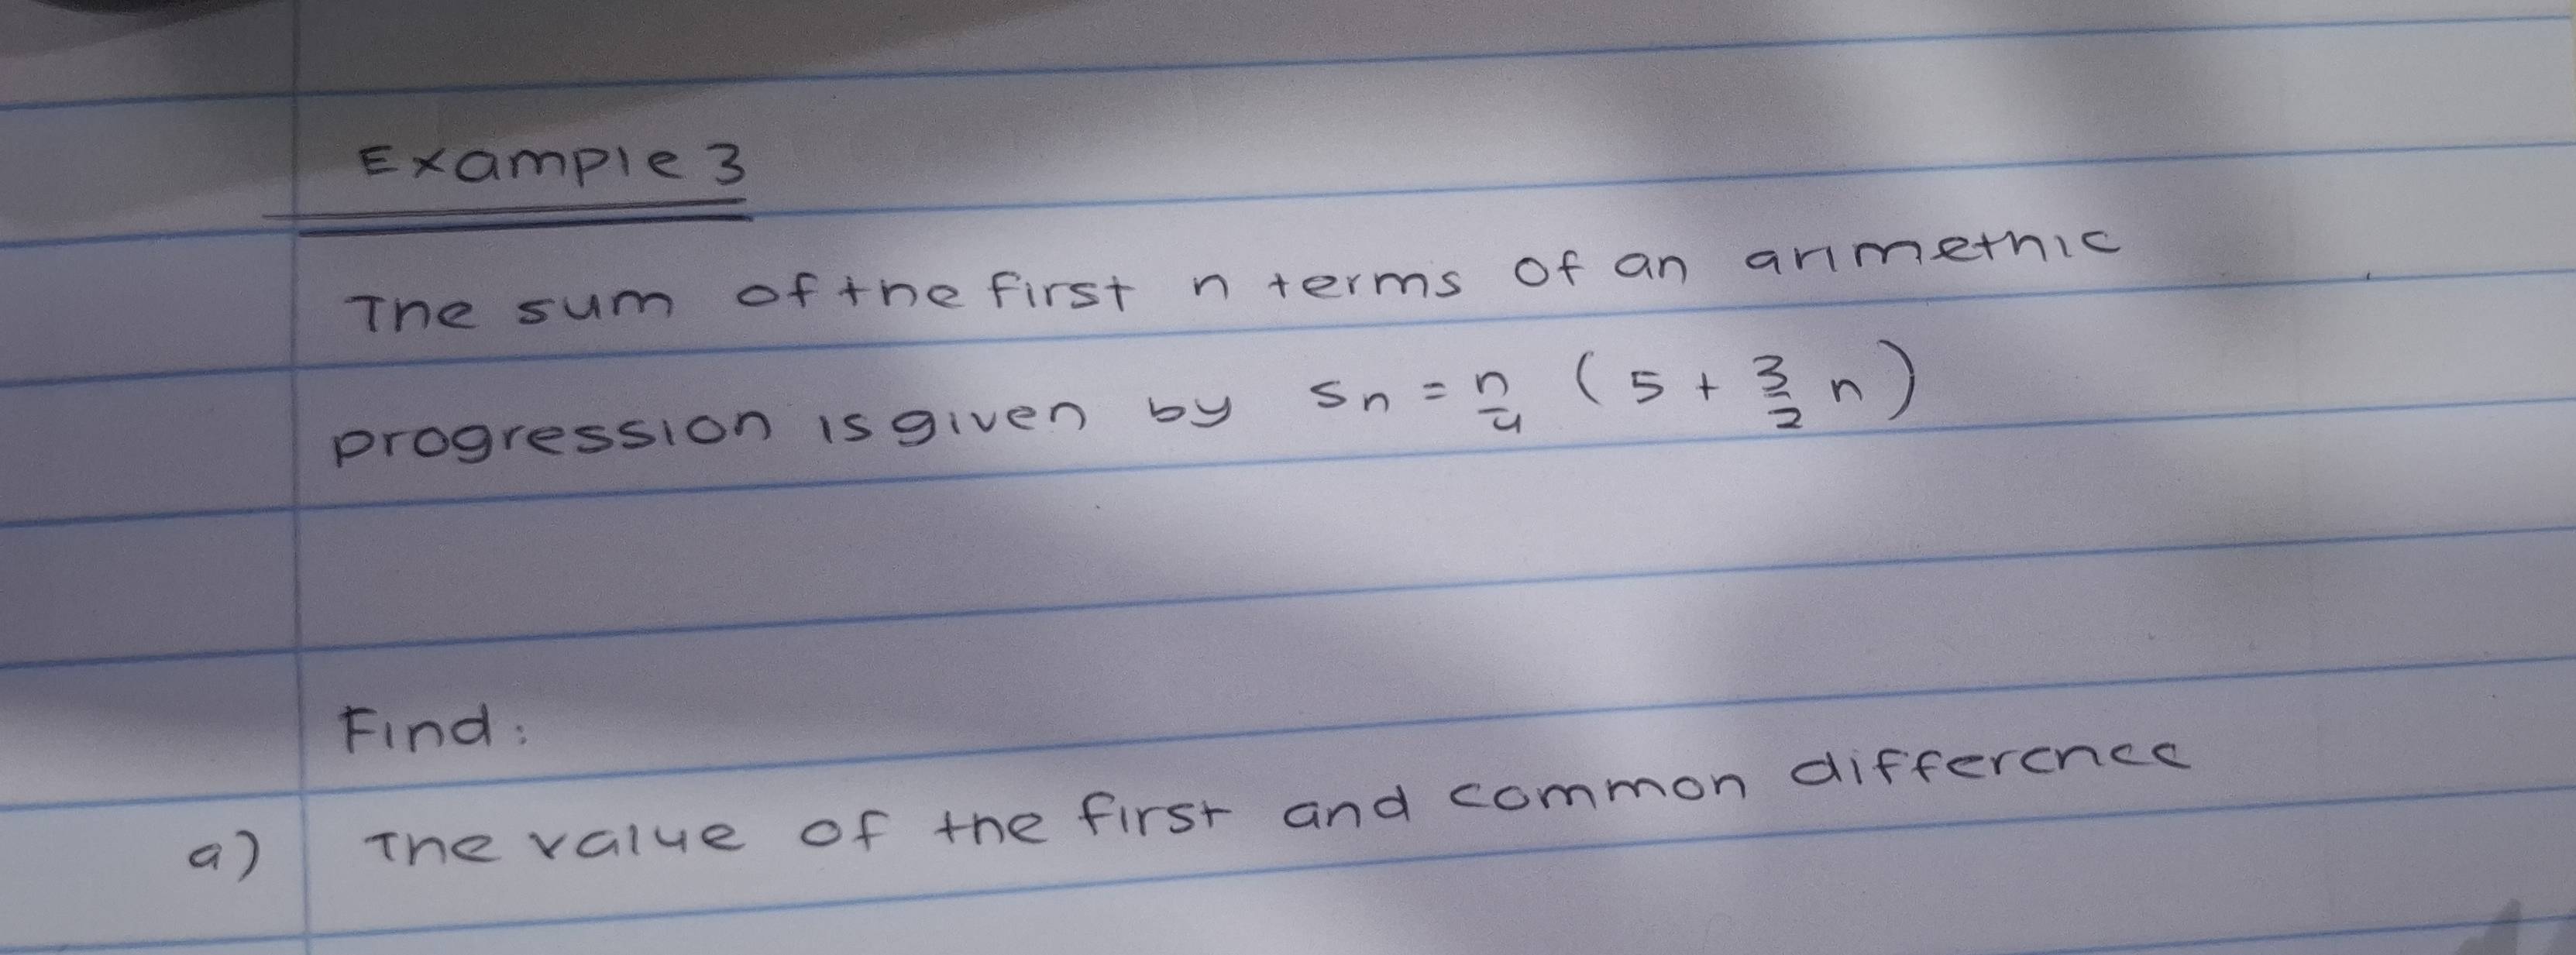 Example 3
The sum of the first n terms of an arimethic
progression is given by Sn = n/4 (5 + 3/2 n)
Find:
a) The value of the first and common difference